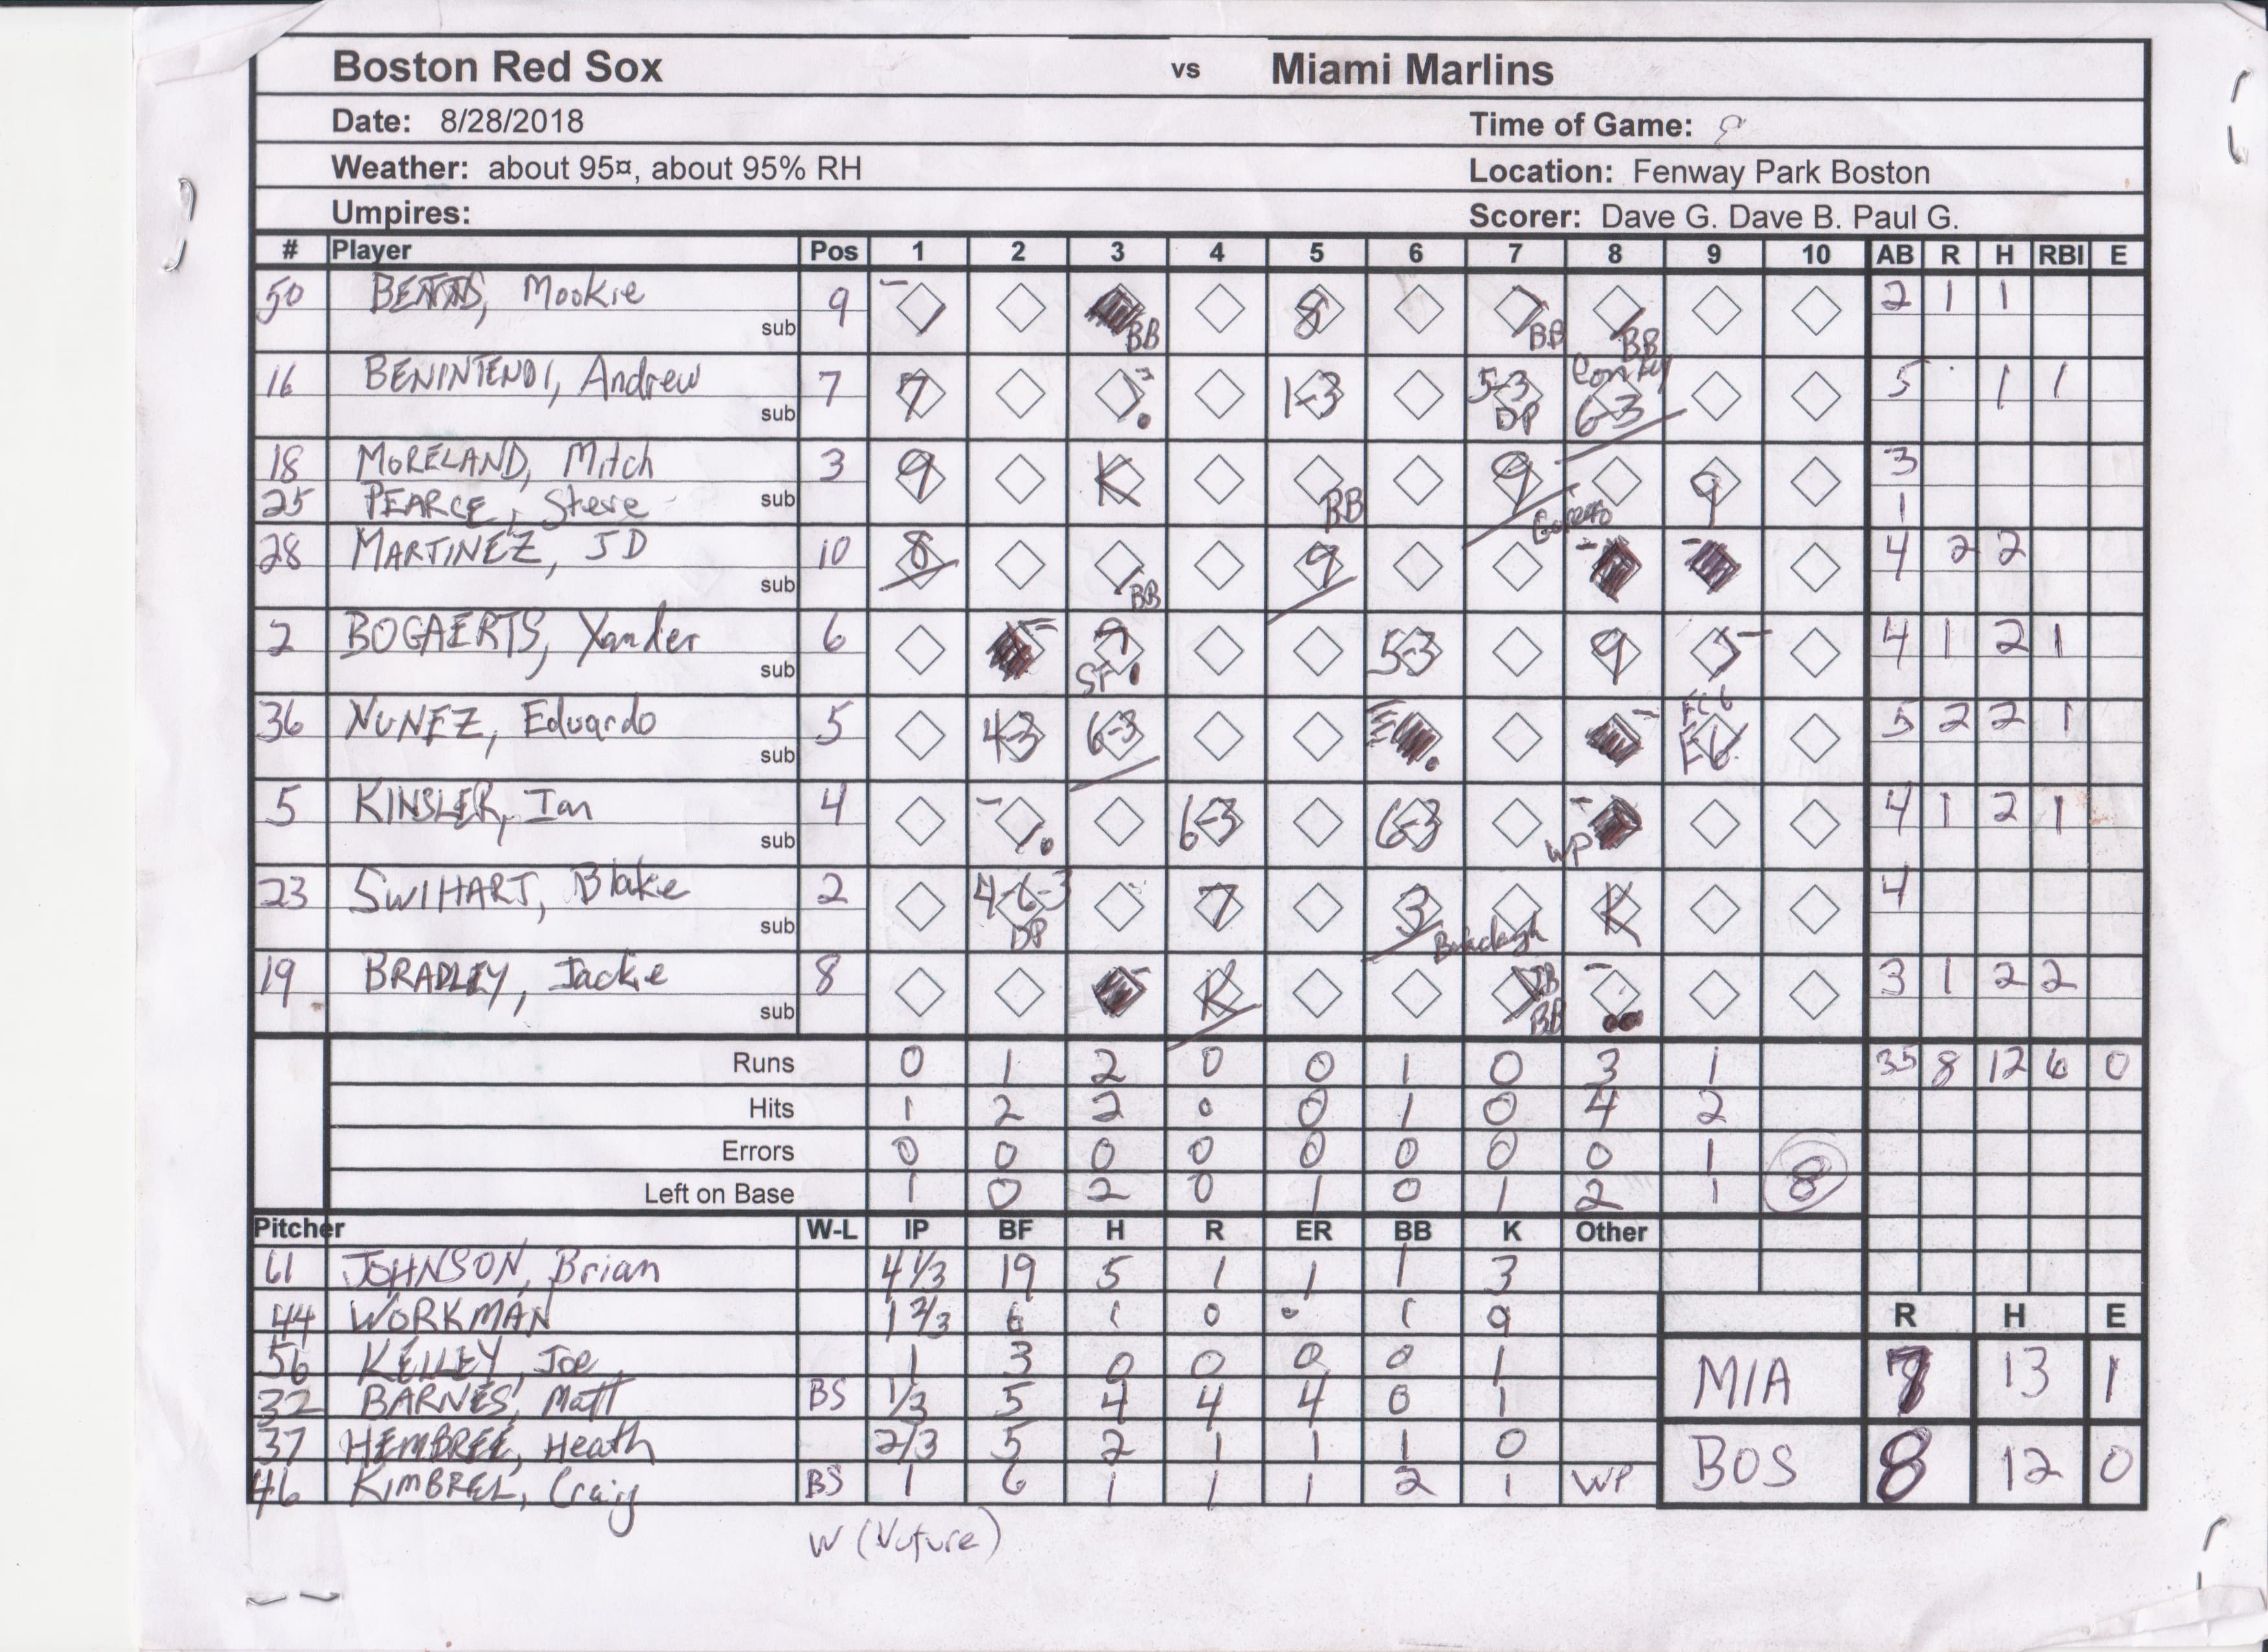 Boston Red Sox vs Miami Marlins
Date: 8/28/2018 Time of Game:
Weather: about 95¤, about 95% RH Location: Fenway Park Boston
Umpires: Scorer: Dave G. Dave B. Paul G.
# Player Pos 1 2 3 4 5 6 7 8 9 10 AB R H RBI E
50 Mookie 9 - BB 8 BB BB 2 1 1
sub
16 BENINTENDI, Andrew 7 7 1-3 5-3 DP 6-3 5 1 1
sub
18 MORELAND, Mitch 3 9 K BB 9 9 3
25 PEARCE, Steve sub 1
28 MARTINEZ, JD 10 8 BB 9 - - 4 2 2
sub
2 BOGAERTS, Xander 6 - 7 SF 5-3 9 - 4 1 2 1
sub
36 NUNEZ, Eduardo 5 4-3 6-3 - FC6 5 2 2 1
sub
5 KINSLER, Ian 4 - 6-3 6-3 - WP 4 1 2 1
sub
23 SWIHART, Blake 2 4-6-3 DP 7 3 K 4
sub
19 BRADLEY, Jackie 8 - K BB - 3 1 2 2
sub
Runs 0 1 2 0 0 1 0 3 1 35 8 12 6 0
Hits 1 2 2 0 0 1 0 4 2
Errors 0 0 0 0 0 0 0 0 1
Left on Base 1 0 2 0 1 0 1 2 1 8
Pitcher W-L IP BF H R ER BB K Other
61 JOHNSON, Brian 4 1/3 19 5 1 1 1 3
44 WORKMAN 1 2/3 6 1 0 0 1 9
56 KELLEY, Joe 1 3 0 0 0 0 1
32 BARNES, Matt BS 1/3 5 4 4 4 0 1
37 HEMBREE, Heath 2/3 5 2 1 1 1 0
46 KIMBREL, Craig BS 1 6 1 1 1 2 1 WP
W
R H E
MIA 7 13 1
BOS 8 12 0